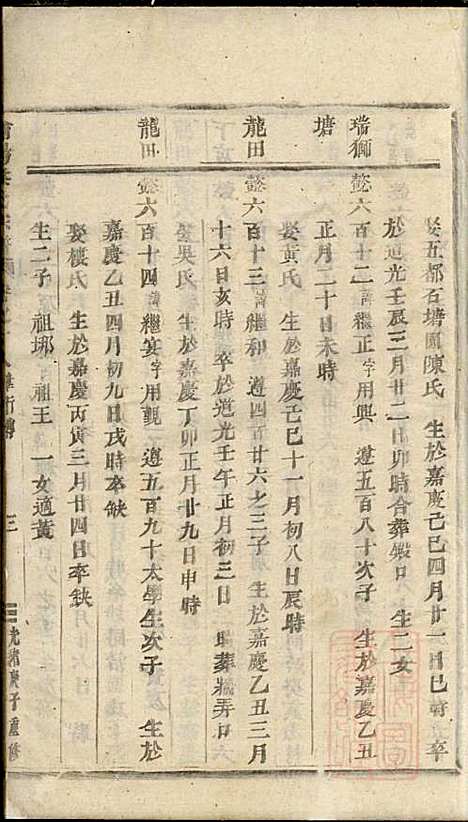 娶五都石塘圓陳氏 生於嘉慶己巳四月廿一日巳時 卒
於道光壬辰三月廿二日卯時合葬鍛口 生二女
瑞獅塘 懿六百十二 諱繼正 字用興 遵五百八十次子 生於嘉慶乙丑
正月二十日未時
娶黃氏 生於嘉慶己巳十一月初八日辰時
龍田 懿六百十三 諱繼和 遵四百廿六之三子 生於嘉慶乙丑三月
十六日亥時 卒於道光壬午正月初三日 葬弄口
娶吳氏 生於嘉慶丁卯正月廿九日申時
龍田 懿六百十四 諱繼宴 字用覲 遵五百九十太學生次子 生於
嘉慶乙丑四月初九日戌時卒缺
娶樓氏 生於嘉慶丙寅三月廿四日卒缺
生二子 祖琊 祖王 一女適黃
行傳 三 光緒庚子重修